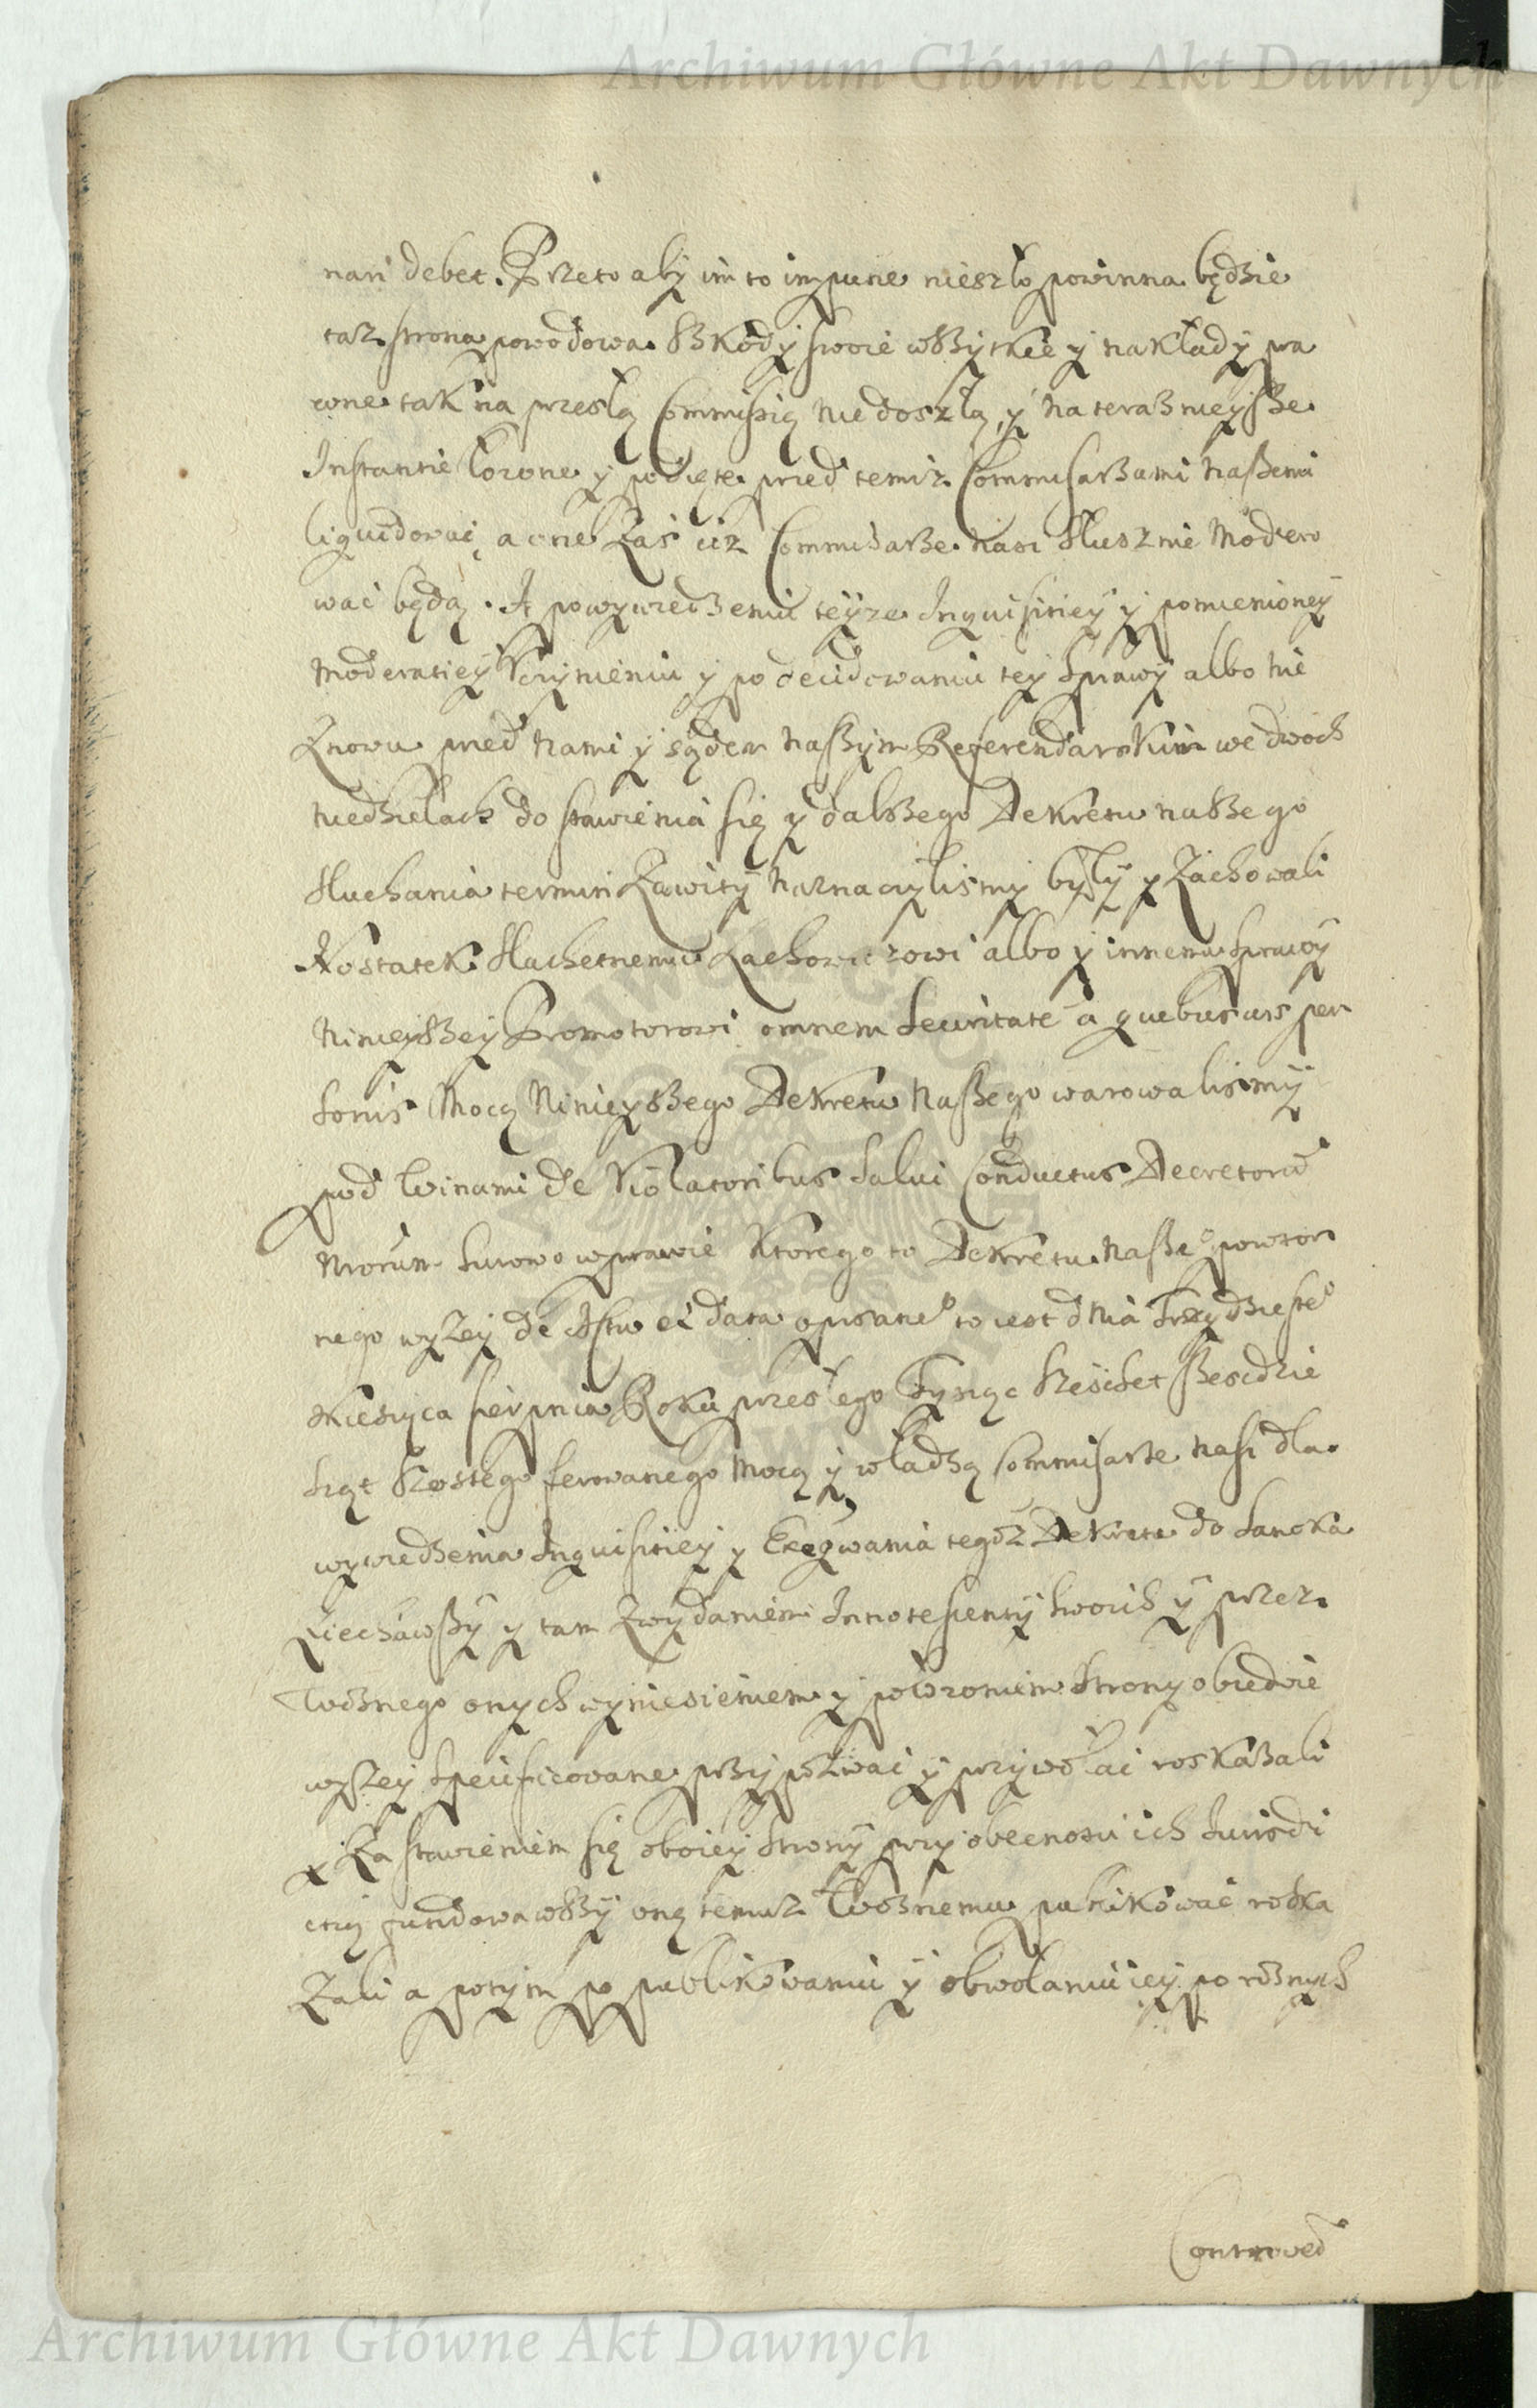 Archiwum Główne Akt Dawnych
nari debet. Przeto aby im to impune nieszło powinna będzie
taz strona powodowa Szkody swoie wszytkie y nakłady pra
wne tak na przeszłą Commissią niedoszłą, y na teraznieysze
Instantie łozone y podięte przed temiz Commisarzami naszemi
liquidować, a one zas ciz Commisarze nasi słusznie modero
wać będą. A po wywiedzeniu teyze Inquisitiey y pomienioney
moderatiey Uczynieniu y po decidowaniu tey sprawy albo nie
znowu przed nami y sądem naszym Referendarskim we dwoch
niedzielach do stawienia się y dalszego Dekretu naszego
słuchania termin zawity naznaczylismy byly y zachowali
Nostatek slachetnemu Lachowiczowi albo y innemu sprawy
ninieyszey Promotorowi omnem securitatē a quibusuis per
sonis Mocą Ninieyszego Dekretu Naszego warowalismy
pod winami de Violatoribus salui Conductus Decretorū
nrorum surowo w prawie Ktorego to Dekretu Nasze° powtor
nego wyzey de Actu et data opisane° to iest dnia Trzydzieste°
Miesiąca sierpnia Roku przesłego Tysiąc szescset szescdzie
siąt szostego ferowanego mocą y władzą Commisarze nasi dla
wywiedzenia Inquisitiey y Exeqwowania tegoz Dekretu do Sanoka
ziechawszy y tam z wydaniem Innotescenty swoich y przez
Woznego onych wyniesieniem y połozeniem strony obiedwie
wyszey specificowane przypozwać y przywołać roskazali
y za stawieniem się oboiey strony przy obecnosci ich Jurisdi
ctią fundowawszy oną temuz Woznemu publikować roska
zali a potym po publikowaniu y obwołaniu iey po roznych
Controwed
Archiwum Główne Akt Dawnych